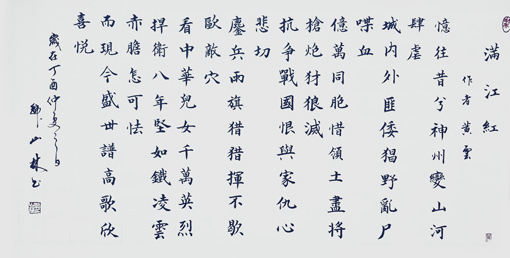 满江紅
作者黄雲
憶往昔兮神州變山河
肆虐
城内外匪倭猖野亂尸
喋血
億萬同胞惜領土盡將
槍炮犲狼滅
抗争戰國恨與家仇心
悲切
鏖兵雨旗猎猎揮不歇
歐敵穴
看中華兒女千萬英烈
捍衛八年堅如鐵凌雲
赤膽怎可怯
而現今盛世譜高歌欣
喜悦
歲在丁酉仲夏之月
山林书